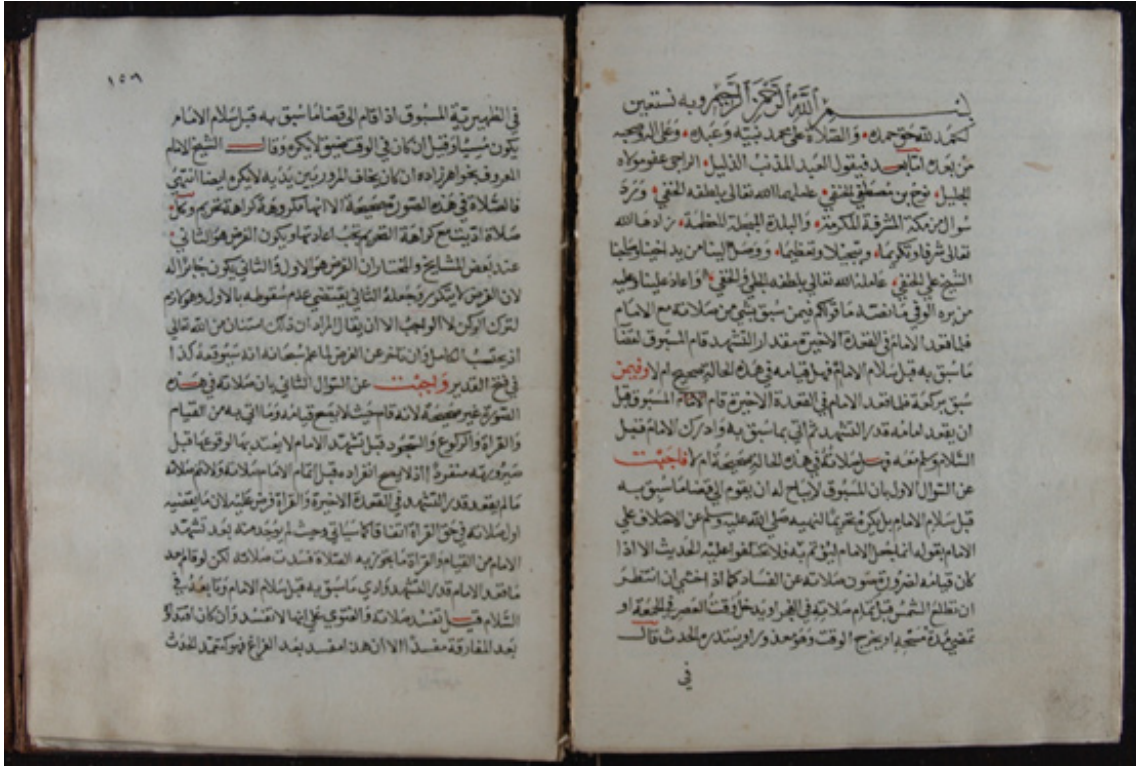 بسم الله الرحمن الرحيم وبه نستعين
الحمد لله حق حمده والصلاة على محمد نبيه وعبده وعلى اله وصحبه
من بعده اما بعد فيقول العبد المذنب الذليل الراجى عفو مولاه
الجليل نوح بن مصطفى الحنفي عاملهما الله تعالى بلطفه الخفي ورد
سوال من مكة المشرفة المكرمة والبلدة المبجلة المعظمة زادها الله
تعالى شرفا وتكريما وتبجيلا وتعظيما ووصل الينا من يد اخينا
الشيخ على الحنفي عاملنا الله تعالى بلطفه الجلي والخفي واعاد علينا وعليه
من بره الوفي ما قولكم فيمن سبق بشئ من صلاته مع الامام
فلما قعد الامام فى القعدة الاخيرة مقدار التشهد قام المسبوق لقضا
ما سبق به قبل سلام الامام فهل قيامه فى هذه الحالة صحيح ام لا وفيمن
سبق بركعة فلما قعد الامام في القعدة الاخيرة قام المسبوق قبل
ان يقعد امامه قدر التشهد ثم اتى بما سبق به وادرك الامام قبل
السلام وسلم معه فهل صلاته فى هذه الحالة صحيحة ام لا فاجبت
عن السوال الاول بان المسبوق لا يباح له ان يقوم الى قضا ما سبق به
قبل سلام الامام بل يكره تحريما لنهيه صلى الله عليه وسلم عن الاختلاف على
الامام بقوله انما جعل الامام ليؤتم به فلا تختلفوا عليه الحديث الا اذا
كان قيامه لضرورة صون صلاته عن الفساد كما اذا خشي ان انتظر
ان تطلع الشمس قبل تمام صلاته فى الفجر او يدخل وقت العصر في الجمعة او
تمضي مدة مسحه او يخرج الوقت وهو معذور او يبتدره الحدث قال
في
١٥٦
في الظهيرية المسبوق اذا قام الى قضا ما سبق به قبل سلام الامام
يكون مسيا وقيل ان كان في الوقت ضيق لا يكره وقال الشيخ الامام
المعروف بخواهر زاده ان كان يخاف المرور بين يديه لا يكره ايضا انتهى
فالصلاة في هذه الصورة صحيحة الا انها مكروهة كراهة تحريم وكل
صلاة اديت مع كراهة التحريم تجب اعادتها ويكون الفرض هو الثاني
عند بعض المشايخ والمختار ان الفرض هو الاول والثاني يكون جابرا له
لان الفرض لا يتكرر وجعله الثاني يقتضي عدم سقوطه بالاول وهو لازم
لترك الركن لا الواجب الا ان يقال المراد ان ذلك امتنان من الله تعالى
اذ يحتسب الكامل وان تاخر عن الفرض لما علم سبحانه انه سيوقعه كذا
في فتح القدير واجبت عن السوال الثاني بان صلاته في هذه
الصورة غير صحيحة لانه قام حيث لا يصح قيامه وما اتى به من القيام
والقراة والركوع والسجود قبل تشهد الامام لا يعتد بها لوقوعها قبل
صيرورته منفردا اذ لا يصح انفراده قبل اتمام الامام صلاته ولا تتم صلاته
ما لم يقعد قدر التشهد في القعدة الاخيرة والقراة فرض عليه لان ما يقضيه
اول صلاته في حق القراة اتفاقا كما سياتي وحيث لم يوجد منه بعد تشهد
الامام من القيام والقراة ما يجوز به الصلاة فسدت صلاته لكن لو قام بعد
ما قعد الامام قدر التشهد وادي ما سبق به قبل سلام الامام وتابعه في
السلام قيل تفسد صلاته والفتوى على انها لا تفسد وان كان اقتداؤه
بعد المفارقة مفسدا الا ان هذا مفسد بعد الفراغ فهو كتعمد الحدث